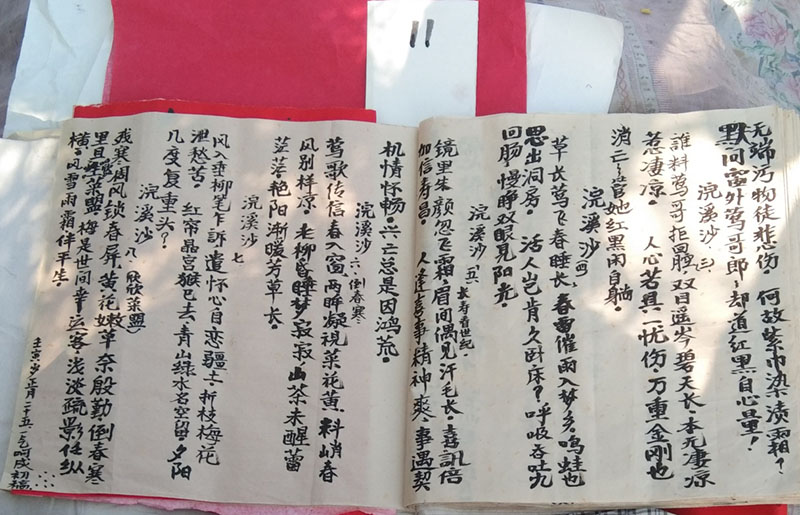 11
无端污物徒悲伤。何故紫巾染渍霜？
默问窗外莺哥郎～却道红黑自心量！
浣溪沙（三）
谁料莺哥拒回脖，双目遥岑碧天长。本无凄凉
惹凄凉。人心若具一忧伤，万重金刚也
消亡～管她红黑闲自躺。
浣溪沙（四）
草长莺飞春睡长，春雷催雨入梦乡。鸣蛙也
思出洞房。活人岂肯久卧床？呼吸吞吐九
回肠，慢睁双眼见阳光。
浣溪沙（五）长寿百世纪。
镜里朱颜忽飞霜，眉间偶见汗毛长。喜讯倍
加信寿昌。人逢喜事精神爽，事遇契
机情怀畅。兴亡总是因鸿荒。
浣溪沙 六、倒春寒
莺歌传信春入窗，两眸凝视菜花黄，料峭春
风别样凉。老柳昏睡梦寂寂，山茶未醒蕾
茫茫。艳阳渐暖芳草长。
浣溪沙 七
风入垂柳笔乍诉，遣怀心自恋疆土，折枝梅花
泄愁苦。红帝晶宫猴已去，青山绿水名空留，夕阳
几度复重头？
浣溪沙 八、（欣欣菜盟）
戎寒，周风锁春屏，黄花嫩草奈殷勤。倒春寒
里目菜盟。梅是世间幸运客，浅淡疏影任纵
横。风雪雨霜伴平生。
壬寅岁正月二十五一气呵成初稿